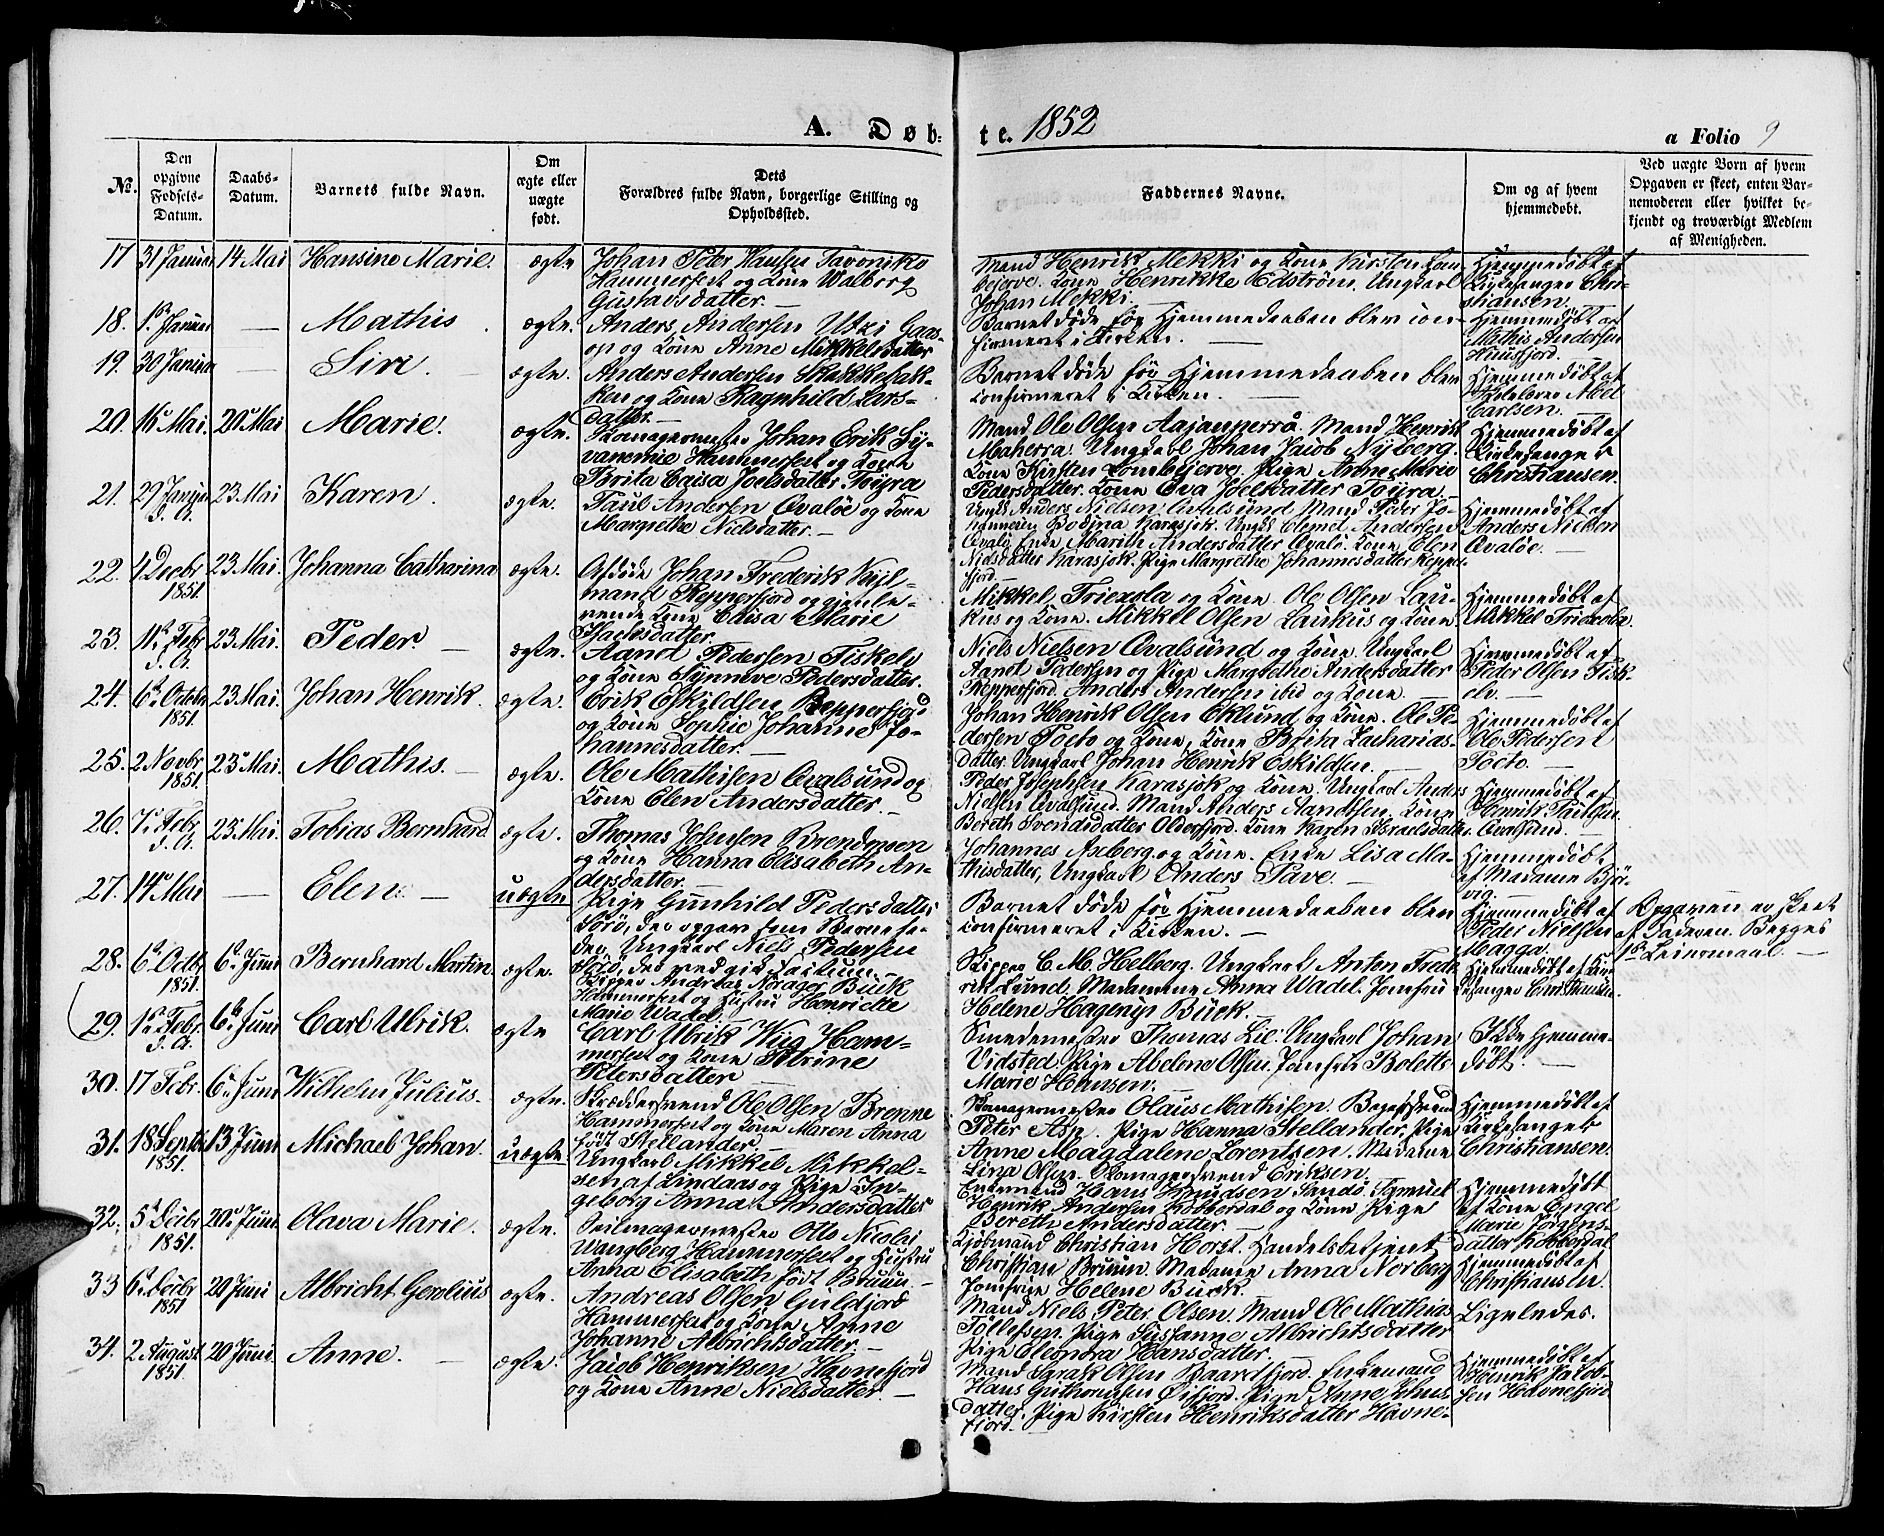 A. Døb=
te. 1852
a Folio 9
No.
Den opgivne Fødsels-Datum.
Daabs-Datum.
Barnets fulde Navn.
Om ægte eller uægte født.
Dets
Forældres fulde Navn, borgerlige Stilling og Opholdssted.
Faddernes Navne.
Om og af hvem hjemmedøbt.
Ved uægte Børn af hvem
Opgaven er skeet, enten Bar-
nemoderen eller hvilket be-
kjendt og troværdigt Medlem
af Menigheden.
17 31 Januar 14 Mai Hansine Marie. ægte
Johan Peter Hansen Tavoniko
Hammerfest og Kone Walborg
Gustavsdatter. —
Mand Henrik Mekki og Kone Kirsten Lom-
bejerve. Kone Henrikke Edstrøm, Ungkarl
Johan Mekki. —
Hjemmedøbt af
Kirkesanger Chri-
stiansen.
18. 1ste Januar — Mathis ægte.
Anders Andersen Utzi Gaas-
op og Kone Anne Mikkelsdatter
Barnet døde før Hjemmedaaben blev con-
firmeret i Kirken. —
Hjemmedøbt af
Mathis Andersen
19. 30 Januar — Siri. ægte.
Anders Andersen
ken og Kone Ragnhild Lars-
datter. —
Barnet døde før Hjemmedaaben blev
confirmeret i Kirken. —
Hjemmedøbt af
Skolelærer Abel
Carlsen.
20. 16 Mai. 20 Mai Marie. ægte.
Skomagermester Johan Erik Si-
vanemie Hammerfest og Kone
Brita Caisa Joelsdatter Töyra
Mand Ole Olsen Aajanperrä. Mand Henrik
Maherra. Ungkarl Johan Jacob Nyberg.
Kone Kirsten Lombejerve. Pige Anne Marie
Pedersdatter. Kone Eva Joelsdatter Töyra. —
Hjemmedøbt af
Kirkesanger
Christiansen.
21. 29 Januar d. A. 23 Mai Karen. ægte.
Paul Andersen Qvaløe og Kone
Margrethe Nielsdatter. —
Ungk. Anders Nielsen Qvalsund Mand Peder Jo-
hannesen Bodina Karasjok. Ungk Clemet Andersen
Qvalø. Enke Marith Andersdatter Qvalø. Kone Elen
Nielsdatter Karasjok. Pige Margrethe Johannesdatter Repper-
fjord.
Hjemmedøbt af
Anders Nielsen
Qvaløe. —
22. 4 Decbr 1851. 23 Mai. Johanna Catharina ægte.
Afdøde Johan Frederik Keil-
mand Repperfjord og gjenle-
vende Kone Caisa Marie
Isaksdatter.
Mikkel Triexola og Kone. Ole Olsen Lau-
kus og Kone. Mikkel Olsen Laukus og Kone.
Hjemmedøbt af
Mikkel Triexola.
23. 11te Febr d. A. 23 Mai. Peder. ægte.
Aand Pedersen Fiskelv
og Kone Synneve Pedersdatter.
Niels Nielsen Qvalsund og Kone. Ungkarl
Aandt Pedersen og Pige Margrethe Andersdatter
Repperfjord. Anders Andersen ibid og Kone.
Hjemmedøbt af
Peder Olsen Fisk-
elv. —
24. 6te October 1851. 23 Mai. Johan Henrik. ægte.
Erik Eskildsen Repperfjord
og Kone Sophie Johanne Jo-
hannesdatter. —
Johan Henrik Olsen Eklund og Kone. Ole Pe-
dersen Pocto og Kone, Kone Brita Zacharias-
datter. Ungkarl Johan Henrik Eskildsen.
Hjemmedøbt af
Ole Pedersen
Pocto. —
25. 2 Novbr 1851. 23 Mai. Mathis. — ægte.
Ole Mathisen Qvalsund og
Kone Elen Andersdatter. —
Peder Josephsen Karasjok og Kone. Ungkarl Anders
Nielsen Qvalsund. Mand Anders Aandtsen, Kone
Bereth Svendsdatter Olderfjord. Kone Karen Israelsdatter.
Hjemmedøbt af
Henrik Paulsen
Qvalsund. —
26. 7 Febr. d. A. 23 Mai. Tobias Bernhard ægte.
Thomas Johnsen Brendmoen
og Kone Hanna Elisabeth An-
dersdatter. —
Johannes Axberg og Kone. Enke Lisa Ma-
thisdatter, Ungkarl Anders Pave. —
Hjemmedøbt
af Madame Björ-
vig. —
27. 14 Mai — Elen. — uægte
Pige Gunhild Pedersdatter
Sørø, der opgav som Barnefa-
der, Ungkarl Niels Pedersen
Barnet døde før Hjemmedaaben blev
confirmeret i Kirken. —
Hjemmedøbt af
Peder Nielsen
Magga.
Opgaven er skeet
af Faderen. Begges
1ste Leiermaal. —
28. 6te Octbr 1851. 6te Juni Bernhard Martin. ægte.
Skipper Andreas Norager Buck
Hammerfest og Hustru Henricke
Marie Wadel. —
Skipper C. M. Hellberg. Ungkarl Anton Frede-
rik Lund. Madamme Anna Wadel. Jomfru
Helene Hagerup Buck. —
Hjemmedøbt af Kir-
kesanger Christiansen.
29. 1ste Febr. d. A. 6te Juni Carl Ulrik. ægte
Carl Ulrik Wiig Ham-
merfest og Kone Petrine
Petersdatter
Smedemester Thomas Lil. Ungkarl Johan
Vidsted. Pige Abelene Olsen. Jomfru Bolette
Marie Hansen.
Ikke hjemme-
døbt. —
30. 17 Febr. 6te Juni Wilhelm Julius. ægte.
Skræddersvend Ole Olsen Brenne
Hammerfest og Kone Maren Anna
født Stellander. —
Skomagermester Olaus Mathisen. Bagersvend
Peter Asp. Pige Hanna Stellander, Pige
Anne Magdalene Lorentsen. Madame
Lina Olsen. Skomagersvend Eriksen.
Hjemmedøbt af
Kirkesanger
Christiansen.
31. 18 Septbr 1851. 13 Juni Michael Johan. uægte
Ungkarl Mikkel Mikkel-
sen af Lindaas og Pige In-
geborg Anna Andersdatter
Enkemand Hans Knudsen Sandø. Samuel
Henrik Andersen Kobberdal og Kone Pige
Bereth Andersdatter. —
Hjemmedøbt
af Kone Engel
Marie Jörgens-
datter Kobberdal
32. 5te Decbr 1851. 20 Juni. Olava Marie. ægte.
Seilmagermester Otto Nicolai
Wangberg Hammerfest og Hustru
Anna Elisabeth født Bruun. —
Kjøbmand Christian Horst. Handelsbetjent
Christian Bruun. Madame Anna Norberg
Jomfrue Helene Buck.
Hjemmedøbt af
Christiansen.
33 6te Decbr 1851 20 Juni Albricht Gerolius ægte.
Andreas Olsen Guldjord
Hammerfest og Kone Anne
Johanne Albrichtsdatter. —
Mand Niels Peter Olsen. Mand Ole Mathias
Tollefsen. Pige Susanne Albrichtsdatter
Pige Eleonora Hansdatter.
Ligeledes.
34. 2 August 1851. 20 Juni. Anne. — ægte.
Jacob Henriksen Havnefjord
og Kone Anne Nielsdatter. —
Mand Israk Olsen Baardfjord. Enkemand
Hans Guthormsen Øifjord. Pige Anne Johns-
datter. Pige Kirsten Henriksdatter Havne-
fjord. —
Hjemmedøbt af
Henrik Jacob-
sen Havnefjord